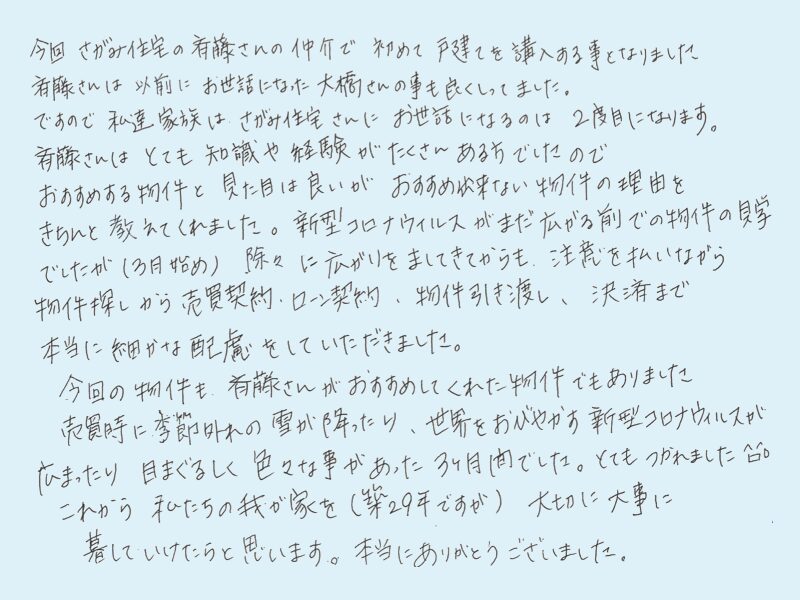 今回 さがみ住宅の斉藤さんの仲介で 初めて 戸建てを購入する事となりました
斉藤さんは 以前に お世話になった 大橋さんの事も良くしってました。
ですので 私達家族は さがみ住宅さんに お世話になるのは 2度目になります。
斉藤さんは とても 知識や経験がたくさんある方でしたので
おすすめする物件と 見た目は良いが おすすめ出来ない物件の理由を
きちんと教えてくれました。新型コロナウィルスがまだ広がる前での物件の見学
でしたが(3月始め) 除々に広がりをましてきてからも、注意を払いながら
物件探しから売買契約、ローン契約、物件引き渡し、決済まで
本当に細かな配慮をしていただきました。
今回の物件も 斉藤さんがおすすめしてくれた物件でもありました
売買時に季節外れの雪が降ったり、世界をおびやかす新型コロナウィルスが
広まったり 目まぐるしく 色々な事があった 3ヶ月間でした。とてもつかれました
これから 私たちの我が家を(築29年ですが) 大切に大事に
暮していけたらと思います。本当にありがとうございました。